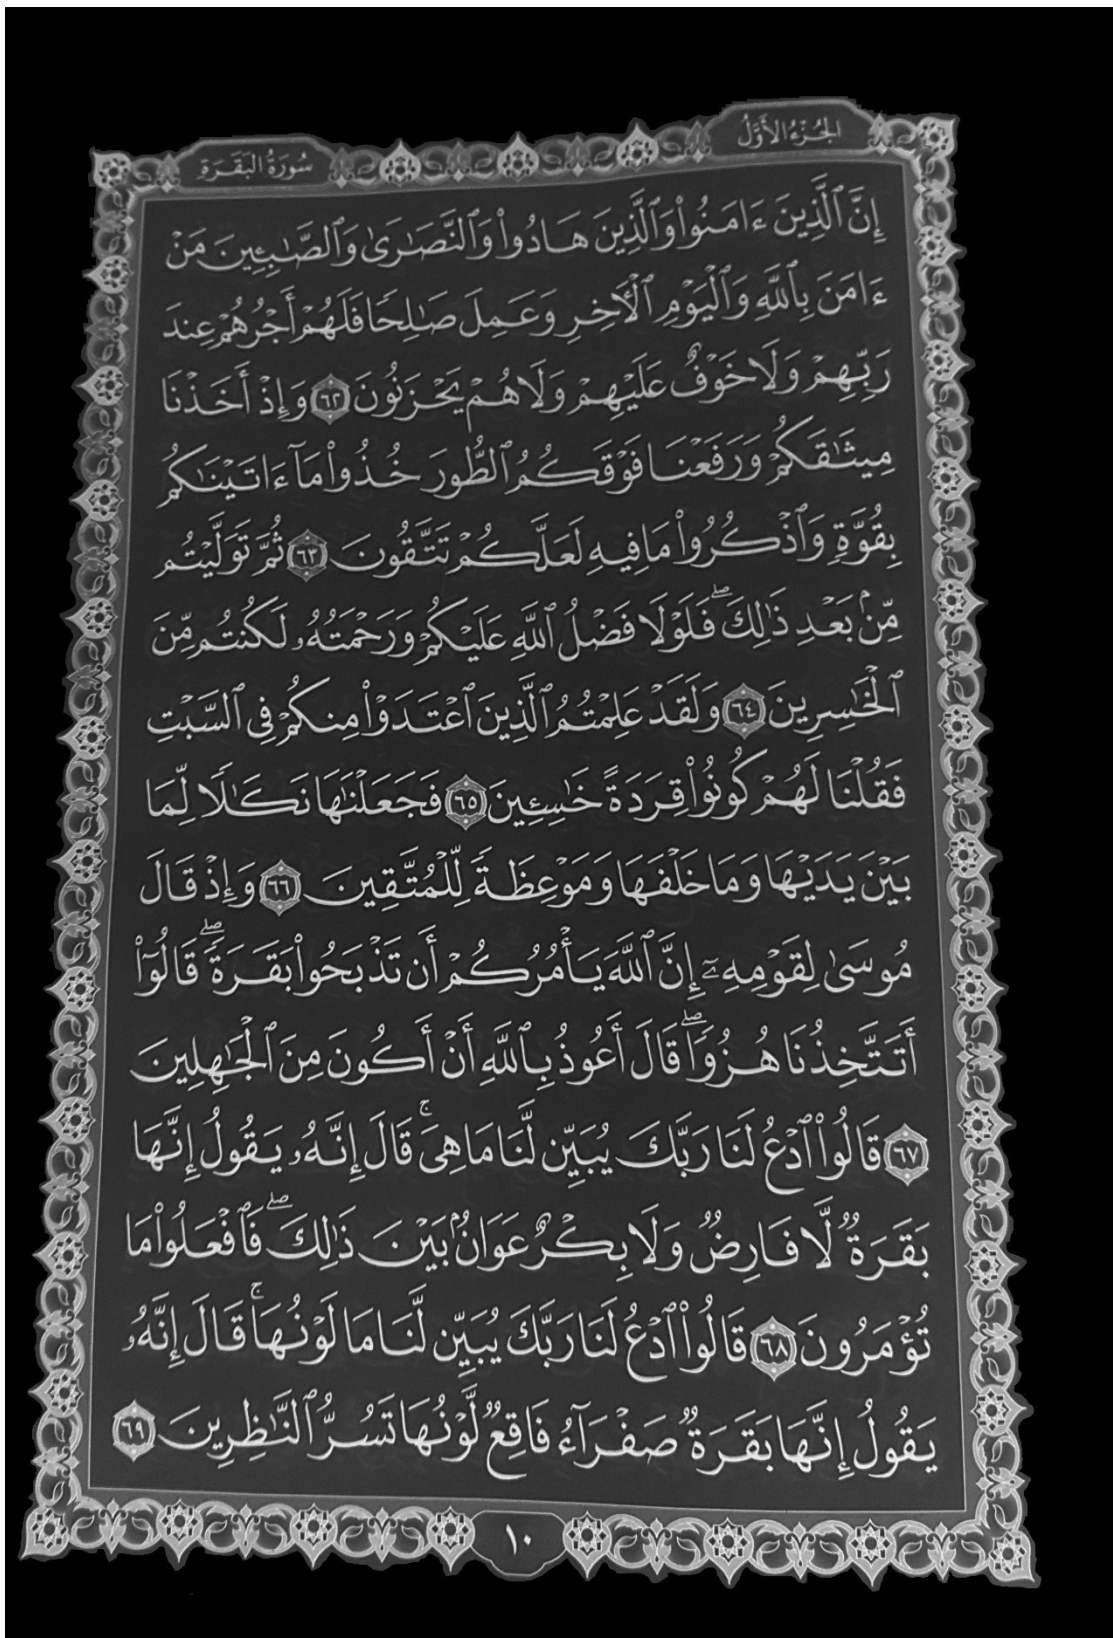 الجُزْءُ الأَوَّلُ
سُورَةُ البَقَرَةِ
إِنَّ ٱلَّذِينَ ءَامَنُواْ وَٱلَّذِينَ هَادُواْ وَٱلنَّصَٰرَىٰ وَٱلصَّٰبِـِٔينَ مَنْ
ءَامَنَ بِٱللَّهِ وَٱلْيَوْمِ ٱلْأٓخِرِ وَعَمِلَ صَٰلِحًا فَلَهُمْ أَجْرُهُمْ عِندَ
رَبِّهِمْ وَلَا خَوْفٌ عَلَيْهِمْ وَلَا هُمْ يَحْزَنُونَ ٦٢ وَإِذْ أَخَذْنَا
مِيثَٰقَكُمْ وَرَفَعْنَا فَوْقَكُمُ ٱلطُّورَ خُذُواْ مَآ ءَاتَيْنَٰكُم
بِقُوَّةٍ وَٱذْكُرُواْ مَا فِيهِ لَعَلَّكُمْ تَتَّقُونَ ٦٣ ثُمَّ تَوَلَّيْتُم
مِّنۢ بَعْدِ ذَٰلِكَۖ فَلَوْلَا فَضْلُ ٱللَّهِ عَلَيْكُمْ وَرَحْمَتُهُۥ لَكُنتُم مِّنَ
ٱلْخَٰسِرِينَ ٦٤ وَلَقَدْ عَلِمْتُمُ ٱلَّذِينَ ٱعْتَدَوْاْ مِنكُمْ فِي ٱلسَّبْتِ
فَقُلْنَا لَهُمْ كُونُواْ قِرَدَةً خَٰسِـِٔينَ ٦٥ فَجَعَلْنَٰهَا نَكَٰلًا لِّمَا
بَيْنَ يَدَيْهَا وَمَا خَلْفَهَا وَمَوْعِظَةً لِّلْمُتَّقِينَ ٦٦ وَإِذْ قَالَ
مُوسَىٰ لِقَوْمِهِۦٓ إِنَّ ٱللَّهَ يَأْمُرُكُمْ أَن تَذْبَحُواْ بَقَرَةًۖ قَالُوٓاْ
أَتَتَّخِذُنَا هُزُوًاۖ قَالَ أَعُوذُ بِٱللَّهِ أَنْ أَكُونَ مِنَ ٱلْجَٰهِلِينَ
٦٧ قَالُواْ ٱدْعُ لَنَا رَبَّكَ يُبَيِّن لَّنَا مَا هِيَۚ قَالَ إِنَّهُۥ يَقُولُ إِنَّهَا
بَقَرَةٌ لَّا فَارِضٌ وَلَا بِكْرٌ عَوَانٌۢ بَيْنَ ذَٰلِكَۖ فَٱفْعَلُواْ مَا
تُؤْمَرُونَ ٦٨ قَالُواْ ٱدْعُ لَنَا رَبَّكَ يُبَيِّن لَّنَا مَا لَوْنُهَاۚ قَالَ إِنَّهُۥ
يَقُولُ إِنَّهَا بَقَرَةٌ صَفْرَآءُ فَاقِعٌ لَّوْنُهَا تَسُرُّ ٱلنَّٰظِرِينَ ٦٩
١٠